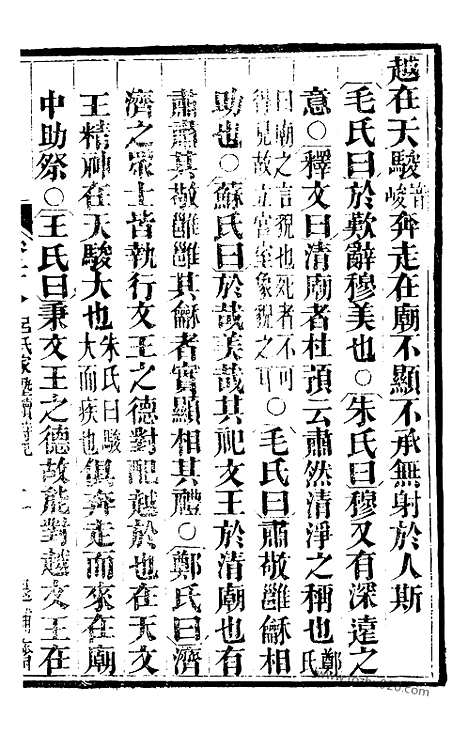 越在天駿音峻奔走在廟不顯不承無射於人斯
毛氏曰於歎辭穆美也○朱氏曰穆又有深遠之
意○釋文曰清廟者杜預云肅然清淨之稱也鄭氏
曰廟之言貌也死者不可得見故立宮室象貌之可○毛氏曰肅敬雝龢相
助也○蘇氏曰於哉美哉其祀文王於清廟也有
肅肅其敬雝雝其龢者實顯相其禮○鄭氏曰濟
濟之眾士皆執行文王之德對配越於也在天文
王精神在天駿大也朱氏曰駿大而疾也俱奔走而來在廟
中助祭○王氏曰秉文王之德故能對越文王在
呂氏家塾讀詩記